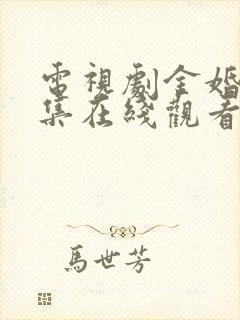 電視劇金婚
集在綫觀看
馬世芳